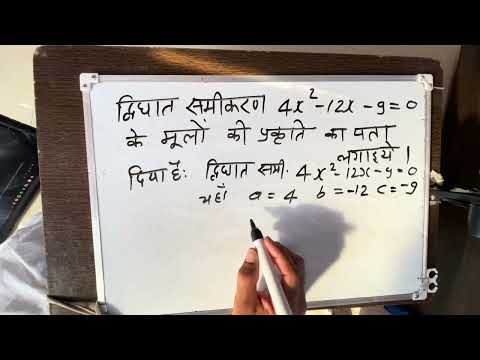 द्विघात समीकरण 4x²-12x-9=0
के मूलों की प्रकृति का पता
लगाइये।
दिया है: द्विघात समी. 4x²-12x-9=0
यहाँ a=4 b=-12 c=-9